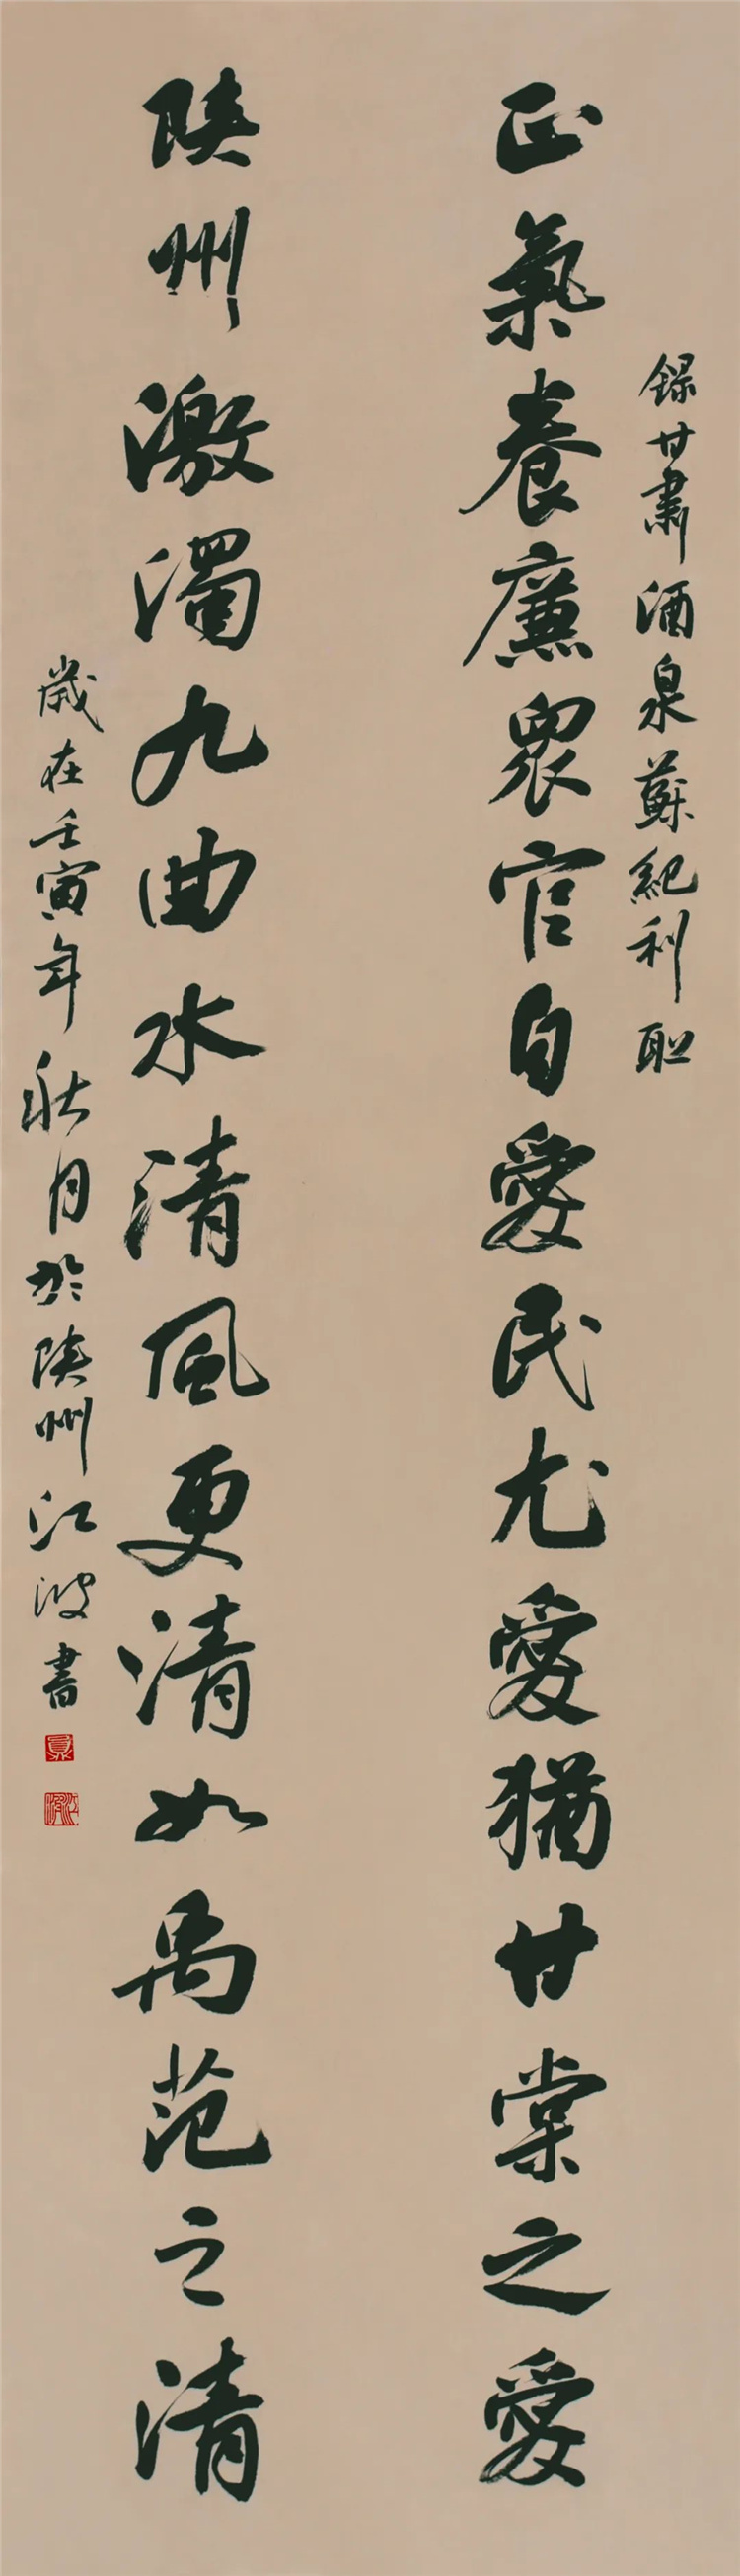 録甘肅酒泉蘇紀利聯
正氣養廉眾官自愛民尤愛猶甘棠之愛
陕州激濁九曲水清風更清如禹范之清
歲在壬寅年秋月於陕州江波書